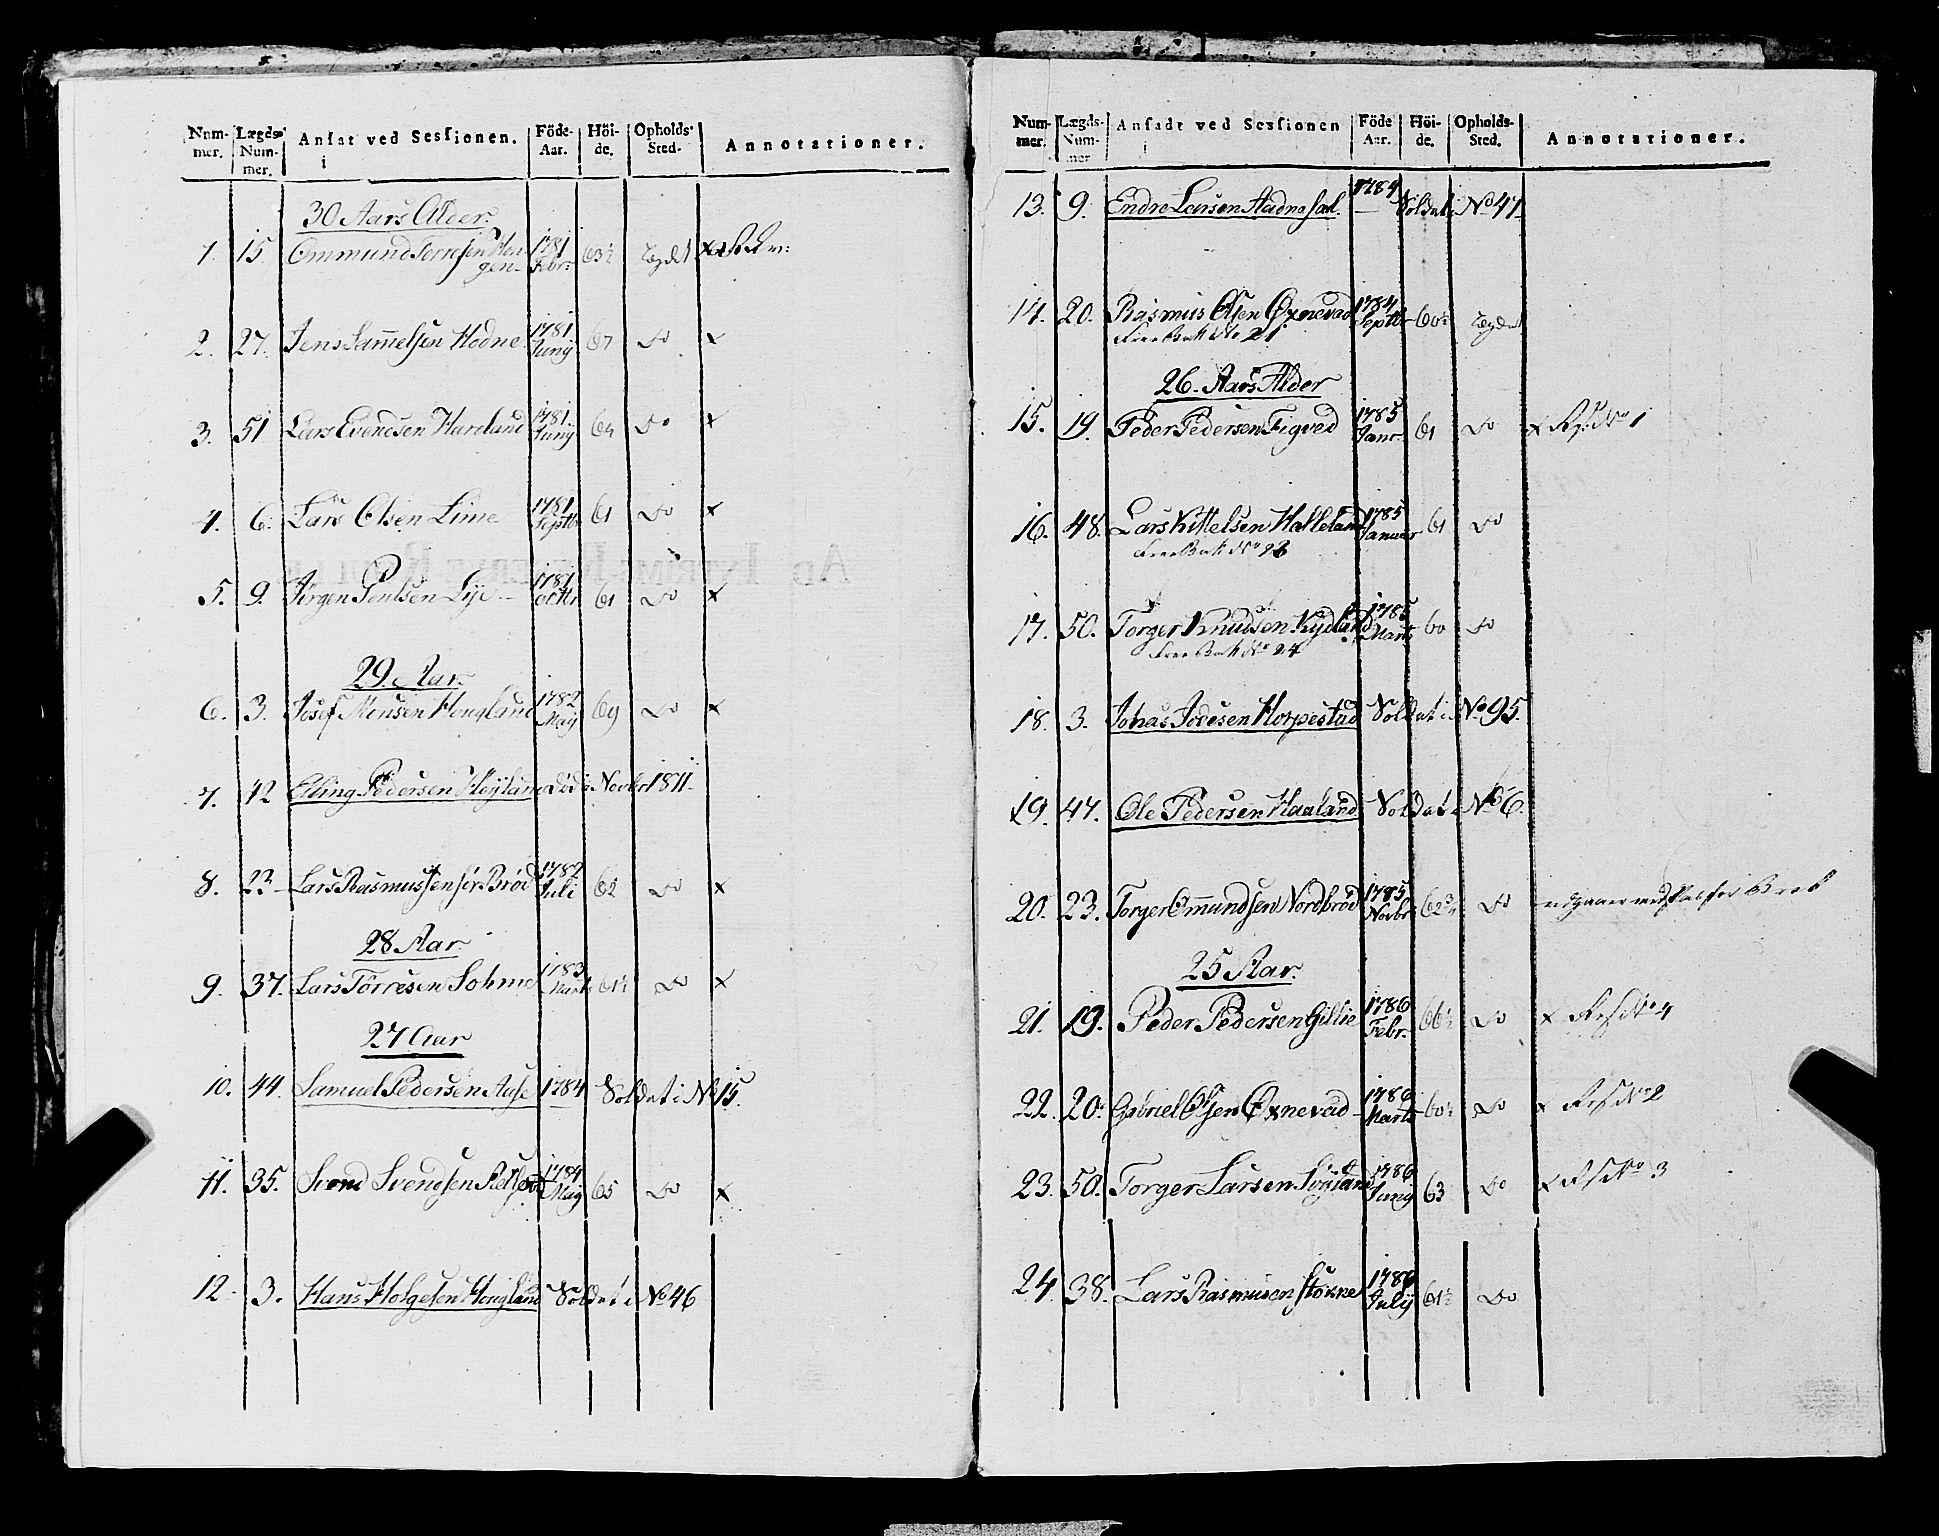 Num- Lægds- Ansat ved Sessionen. Föde- Höi- Opholds- Annotationer.
mer. Num- i Aar. de. Sted.
mer.
30 Aars Alder.
1. 15. Ommund Torresen Hau- 1781 63½
gen Febr:
2. 27. Jens Samuelsen Hodne 1781 Junij 67 Do x
3. 51 Lars Evendsen Hareland 1781 Junij 64 Do x
4. 6. Lars Olsen Lime 1781 Septbr 61 Do x
5. 9. Jörgen Poulsen Lye 1781 octbr 61 Do x
29. Aar.
6. 3. Josef Monsen Hougland 1782 Maij 69 Do x
7. 42 Elling Pedersen Höyland Död i Novbr 1811
8. 23 Lars Rasmussen sör Bröd 1782 Juli 62 Do x
28 Aar.
9. 37. Lars Törresen Sohme 1783 Marts 61½ Do x
27 Aar
10. 44. Samuel Pedersen Aase 1784 Soldat i No 15.
11. 35. Svend Svendsen 1784 Maij 65 Do x
12. 3. Hans Holgesen Hougland Soldat i No 46
Num- Lægds- Ansadt ved Sessionen Föde Höi- Opholds- Annotationer.
mer. Num- i Aar. de. Sted.
mer
13. 9. Endre Larsen Aadnesal. 1784 Soldat i No 47
14. 20. Rasmus Olsen Öxnevad 1784 Septbr 60½
No 21
26. Aars Alder
15. 19. Peder Pedersen Figved 1785 Janr 61 Do x No 1
16. 48. Lars Kittelsen Halleland 1785 Januar 61 Do
No 23
17. 50. Torger Knudsen Kydland 1785 Marts 60 Do
No 24
18. 3. Johas Jodesen Horpestad Soldat i No 95.
19. 47. Ole Pedersen Haaland Soldat i No 6.
20. 23. Torger Ommundsen Nordbröd 1785 Novbr 62¾ Do
25 Aar.
21. 19. Peder Pedersen Gillie 1786 Febr. 66½ Do x No 4
22. 20. Gabriel Olsen Öxnevad 1786 Marts 60½ Do x No 2
23. 50. Torger Larsen 1786 Junij 63 Do x No 3
24. 38. Lars Rasmusen Stokne 1786 Julij 61½ Do